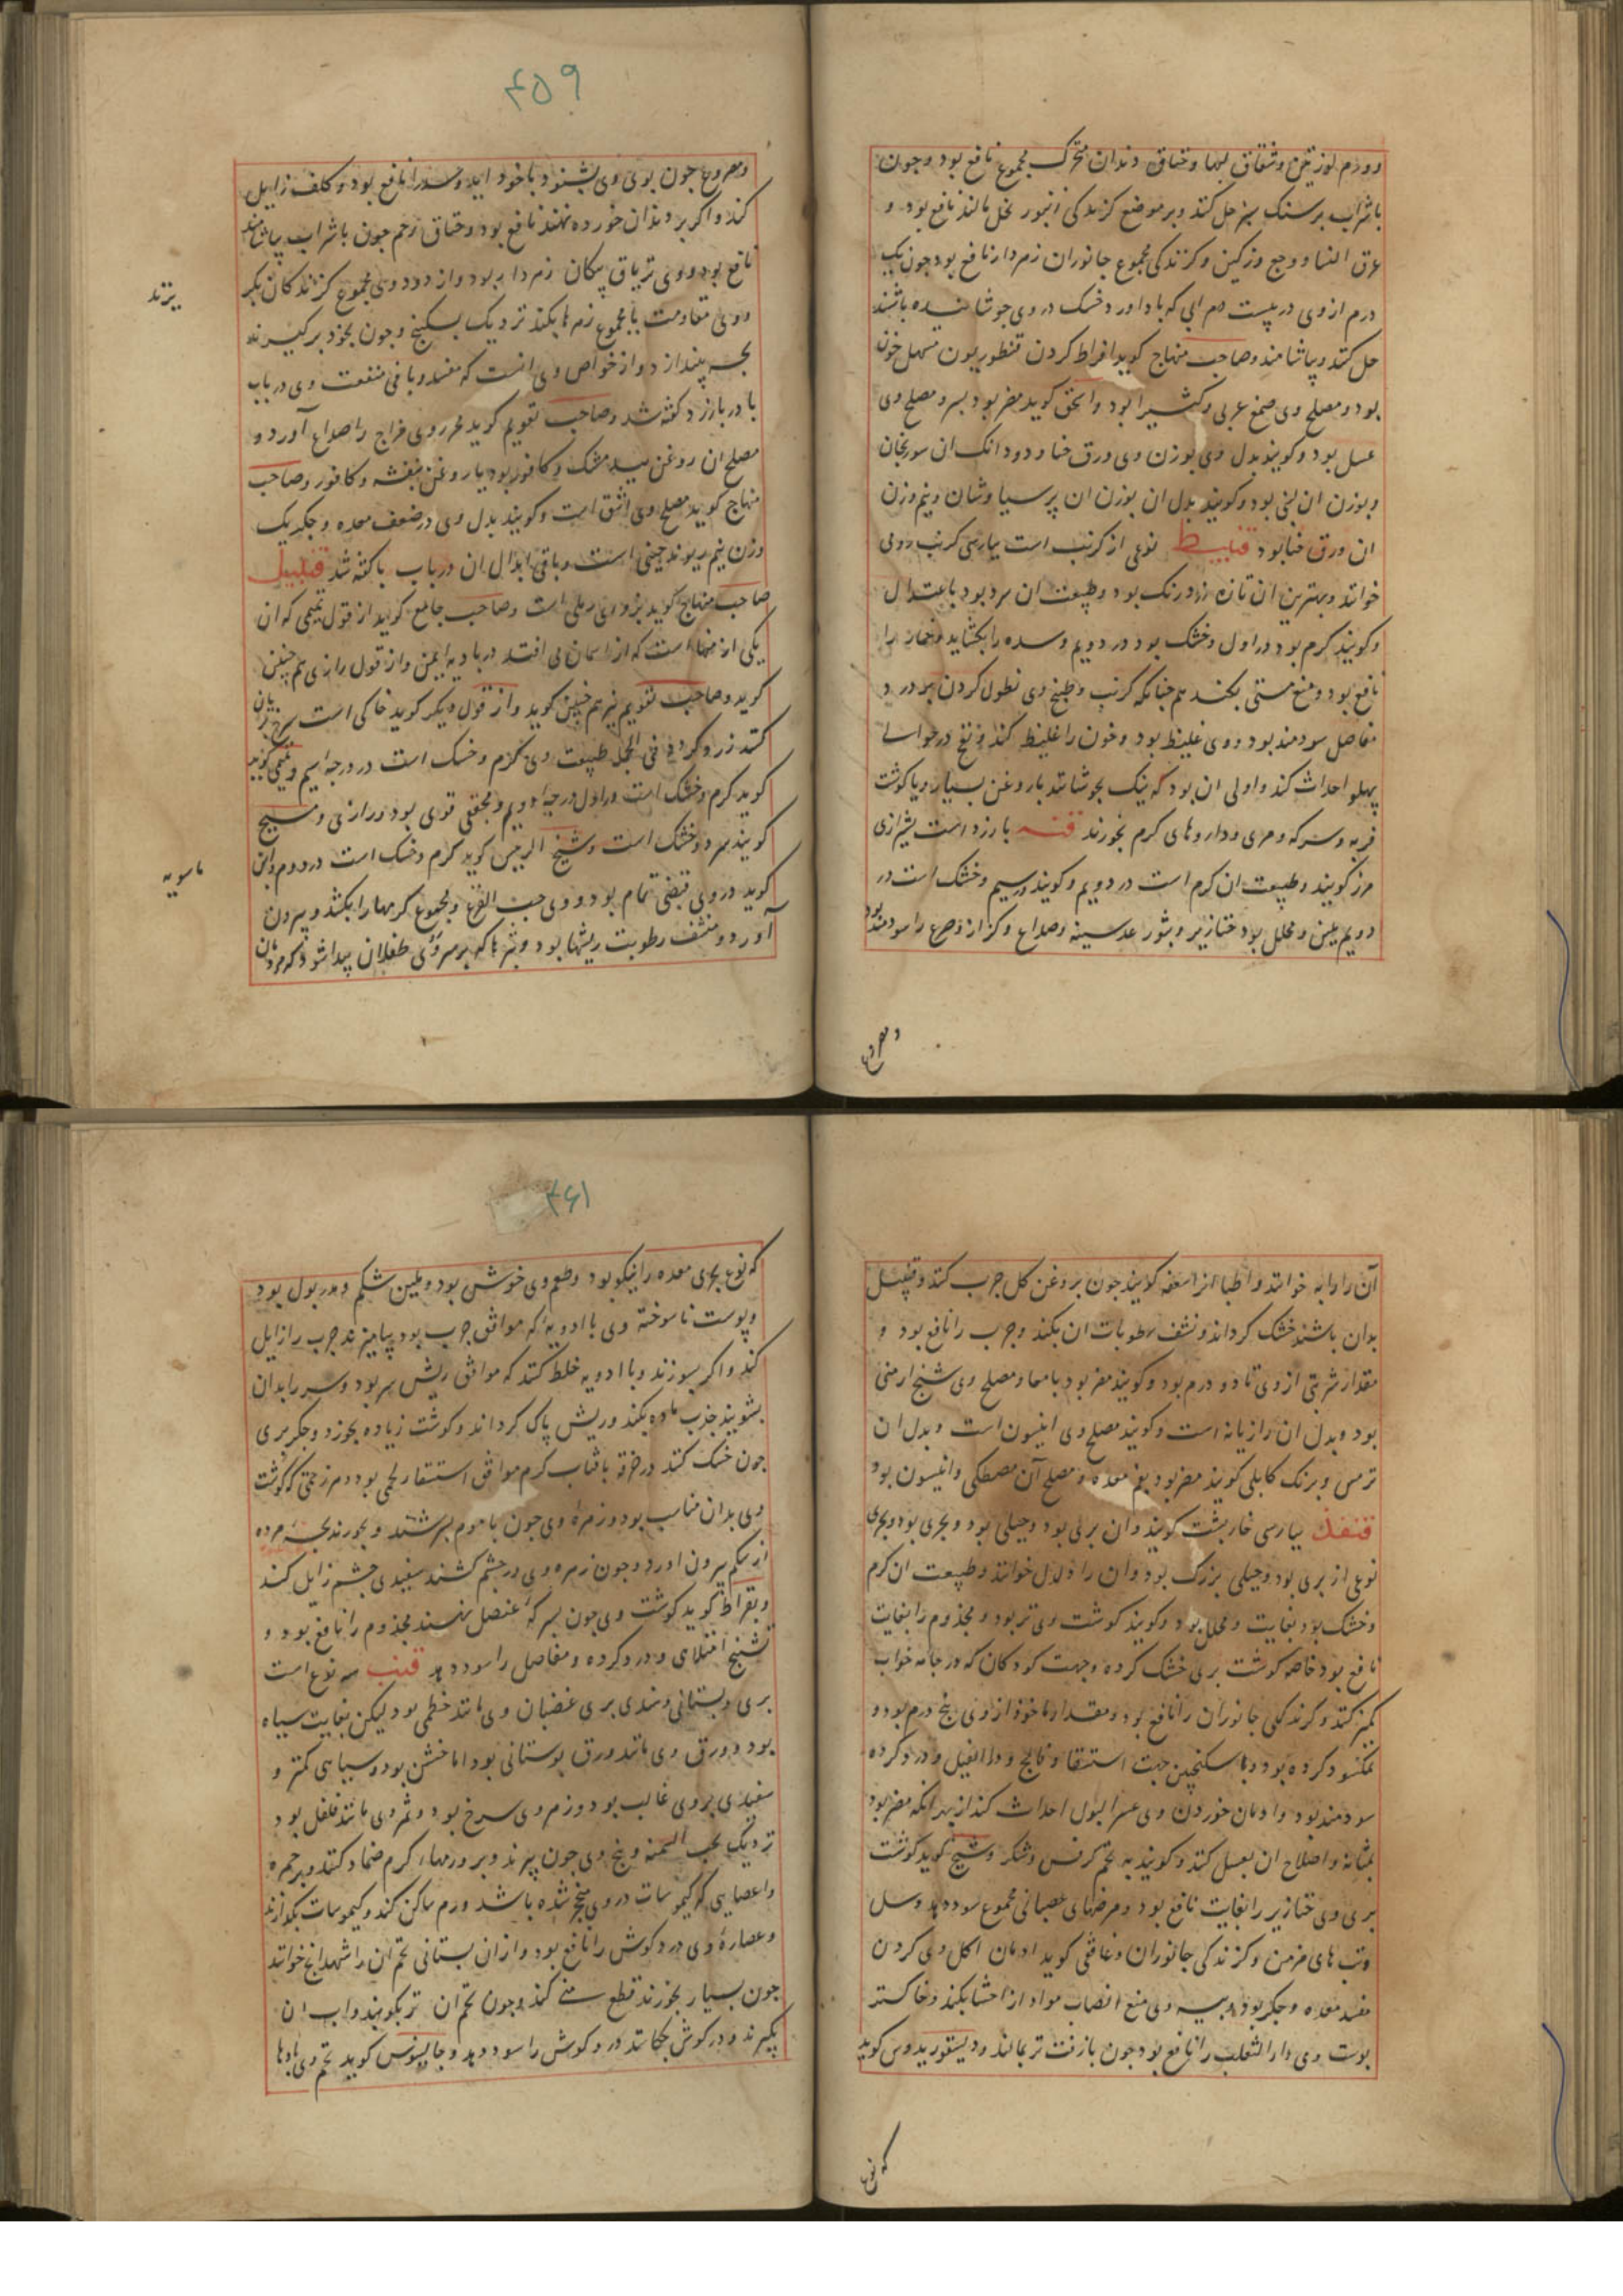 وورم لوزتین و شقاق لبها و خناق و دندان متحرک مجموع نافع بود و چون
با شراب بر سنک بز حل کنند و بر موضع کزیدکی زنبور نحل مالند نافع بود و
عرق النسا و وجع وزکین و کزندکی مجموع جانوران زهردار نافع بود چون یک
درم از وی در بیست درم ابی که باداورد خشک در وی جوشانیده باشند
حل کنند و بیاشامند و صاحب منهاج کوید افراط کردن قنطوریون مسهل خون
بود و مصلح وی صمغ عربی و کثیرا بود و اسحق کوید مضر بود بسر و مصلح وی
عسل بود و کویند بدل وی بوزن وی ورق حنا و دو دانک ان سورنجان
و بوزن ان لبنی بود و کویند بدل ان بوزن ان پرسیاوشان و نیم وزن
ان ورق حنا بود قنابیط نوعی از کرنب است بپارسی کرنب رومی
خوانند و بهترین ان تازه زرد رنک بود و طبیعت ان سرد بود باعتدال
و کویند کرم بود در اول و خشک بود در دویم و سده را بکشاید و خمار را
نافع بود و منع مستی بکند هم چنانکه کرنب و طبیخ وی نطول کردن بر درد
مفاصل سودمند بود و وی غلیظ بود و خون را غلیظ کند و نفخ در حوالی
پهلو احداث کند و اولی ان بود که نیک بجوشانند با روغن بسیار و یا کوشت
فربه و سرکه و مری و داروهای کرم بخورند قنه بارزد است بشیرازی
مرز کویند و طبیعت ان کرم است در دویم و کویند در سیم و خشک است در
دویم ملین و محلل بود خنازیر و بثور عدسیه و صداع و کزاز و صرع را سودمند بود
و مصروع
۴۵۹
و مصروع چون بوی وی بشنود با خود اید و سدر را نافع بود و کلف زایل
کند و اکر بر دندان خورده نهند نافع بود و خناق رحم چون با شراب بیاشامند
نافع بود و وی تریاق پیکان زهردار بود و از دود وی مجموع کزندکان بکریزند
و وی مقاومت با مجموع زهرها بکند نزدیک بسکبینج و چون بخود برکیرند
بچه بیندازد و از خواص وی انست که مفسد و باقی منفعت وی در باب
با در بارزد کفته شد و صاحب تقویم کوید محروری مزاج را صداع آورد و
مصلح ان روغن بید مشک و کافور بود یا روغن بنفشه و کافور و صاحب
منهاج کوید مصلح وی اشق است و کویند بدل وی در ضعف معده و جکر یک
وزن نیم ریوند چینی است و باقی ابدال ان در باب با کفته شد قنبیل
صاحب منهاج کوید بزوری رملی است و صاحب جامع کوید از قول تمیمی که ان
یکی از منها است که از اسمان می افتد در بادیه یمن و از قول رازی هم چنین
کوید و صاحب تقویم نیز هم چنین کوید و از قول دیکر کوید خاکی است سرخ
کند زرد کرد و فی الجمله طبیعت وی کرم و خشک است در درجه سیم و تمیمی کوید
کوید کرم و خشک است در اول درجه دویم و مجففی قوی بود و رازی و مسیح
کویند سرد و خشک است و شیخ الرییس کوید کرم و خشک است در دوم و ابن
کوید در وی قبضی تمام بود و وی حب القرع و مجموع کرمها را بکشد و بیرون
آورد و منشف رطوبت ریشها بود و بثرها که بر سر و روی طفلان پیدا شود که مردمان
ماسویه
آن را رایه خوانند و اطبا انرا سعفه کویند چون بروغن کل چرب کنند و قنبیل
بدان باشند خشک کرداند و نشف رطوبات ان بکند و جرب را نافع بود و
مقدار شربتی از وی تا دو درم بود و کویند مضر بود بامعا و مصلح وی شیح ارمنی
بود و بدل ان رازیانه است و کویند مصلح وی انیسون است و بدل ان
ترمس و برنک کابلی کویند مضر بود بفم معده و مصلح آن مصطکی و انیسون بود
قنفذ بپارسی خارپشت کویند و ان بری بود و جبلی بود و بحری بود و بحری
نوعی از بری بود و جبلی بزرک بود و ان را دلدل خوانند و طبیعت ان کرم
و خشک بود بغایت و محلل بود و کویند کوشت وی تر بود و مجذوم را بغایت
نافع بود خاصه کوشت بری خشک کرده و جهت کودکان که در جامه خواب
کمیز کنند و کزندکی جانوران را نافع بود و مقدار ماخوذ از وی پنج درم بود و
نمکسود کرده بود و با سکنجبین جهت استسقا و فالج و داء الفیل و درد کرده
سودمند بود و ادمان خوردن وی عسر البول احداث کند از بهر انکه مضر بود
بمثانه و اصلاح ان بعسل کنند و کویند به تخم کرفس و شکر و شیخ کوید کوشت
بری وی خنازیر را بغایت نافع بود و مرضهای عصبانی مجموع سود دهد و سل
و تب های مزمن و کزندکی جانوران و غافقی کوید ادمان اکل وی کردن
مفسد معده و جکر بود و پیه وی منع انصاب مواد از احشا بکند و خاکستر
پوست وی داء الثعلب را نافع بود چون با زفت تر بمالند و دیسقوریدوس کوید
که نوع
۴۶۱
که نوع بحری معده را نیکو بود و طعم وی خوش بود و ملین شکم و مدر بول بود
و پوست نا سوخته وی با ادویه که موافق جرب بود بیامیزند جرب را زایل
کند و اکر بسوزند و با ادویه خلط کنند که موافق ریش سر بود و سر را بدان
بشویند جذب ماده بکند و ریش پاک کرداند و کوشت زیاده بخورد و جکر بری
چون خشک کنند در خرقه بافتاب کرم موافق استسقاء لحمی بود و هر زحمتی که کوشت
وی بدان مناسب بود و زهره وی چون با موم بسرشند و بخورند بچه مرده
از شکم بیرون اورد و چون زهره وی در چشم کشند سفیدی چشم زایل کند
و بقراط کوید کوشت وی چون بسرکه عنصل نهند مجذوم را نافع بود و
تشنج امتلای و درد کرده و مفاصل را سود دهد قنب سه نوع است
بری و بستانی و هندی بری غضبان وی مانند خطمی بود لیکن بغایت سیاه
بود و ورق وی مانند ورق بوستانی بود اما خشن بود و سیاهی کمتر و
سفیدی بر وی غالب بود و زهر وی سرخ بود و ثمر وی مانند فلفل بود
نزدیک بحب السمنه و بیخ وی چون بپزند و بر ورمهاء کرم ضماد کنند و بر جمره
و اعصابی که کیموسات در وی متحجر شده باشد ورم ساکن کند و کیموسات بکدازند
و عصاره وی درد کوش را نافع بود و از ان بستانی تخم ان را شهدانج خوانند
چون بسیار بخورند قطع منی کند و چون تخم ان تر بکویند و اب ان
بکیرند و در کوش چکانند درد کوش را سود دهد و جالینوس کوید تخم وی بادها